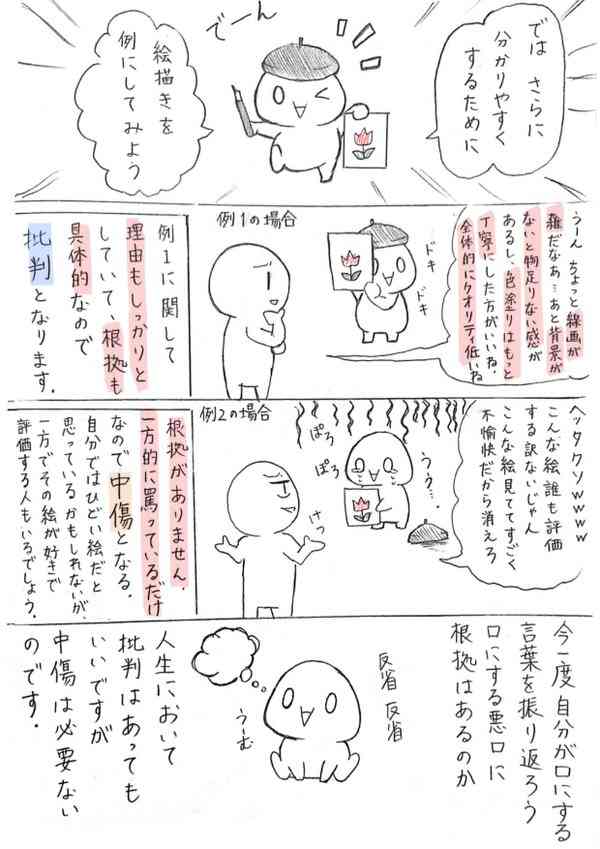 では さらに
分かりやすく
するために
でーん
絵描きを
例にしてみよう
うーん ちょっと線画が
雑だなぁ…あと背景が
ないと物足りない感が
あるし、色塗りはもっと
丁寧にした方がいいね.
全体的にクオリティ低いね
ドキ
ドキ
例1の場合
例1に関して
理由もしっかりと
していて、根拠も
具体的なので
批判となります.
ヘッタクソwwww
こんな絵 誰も評価
する訳ないじゃん
こんな絵見ててすごく
不愉快だから消えろ
うぅ…
ぽろ
ぽろ
けっ
例2の場合
根拠がありません.
一方的に罵っているだけ
なので中傷となる.
自分ではひどい絵だと
思っているかもしれないが、
一方でその絵が好きで
評価する人もいるでしょう.
今一度自分が口にする
言葉を振り返ろう
口にする悪口に
根拠はあるのか
反省 反省
うーむ
人生において
批判はあっても
いいですが
中傷は必要ない
のです.